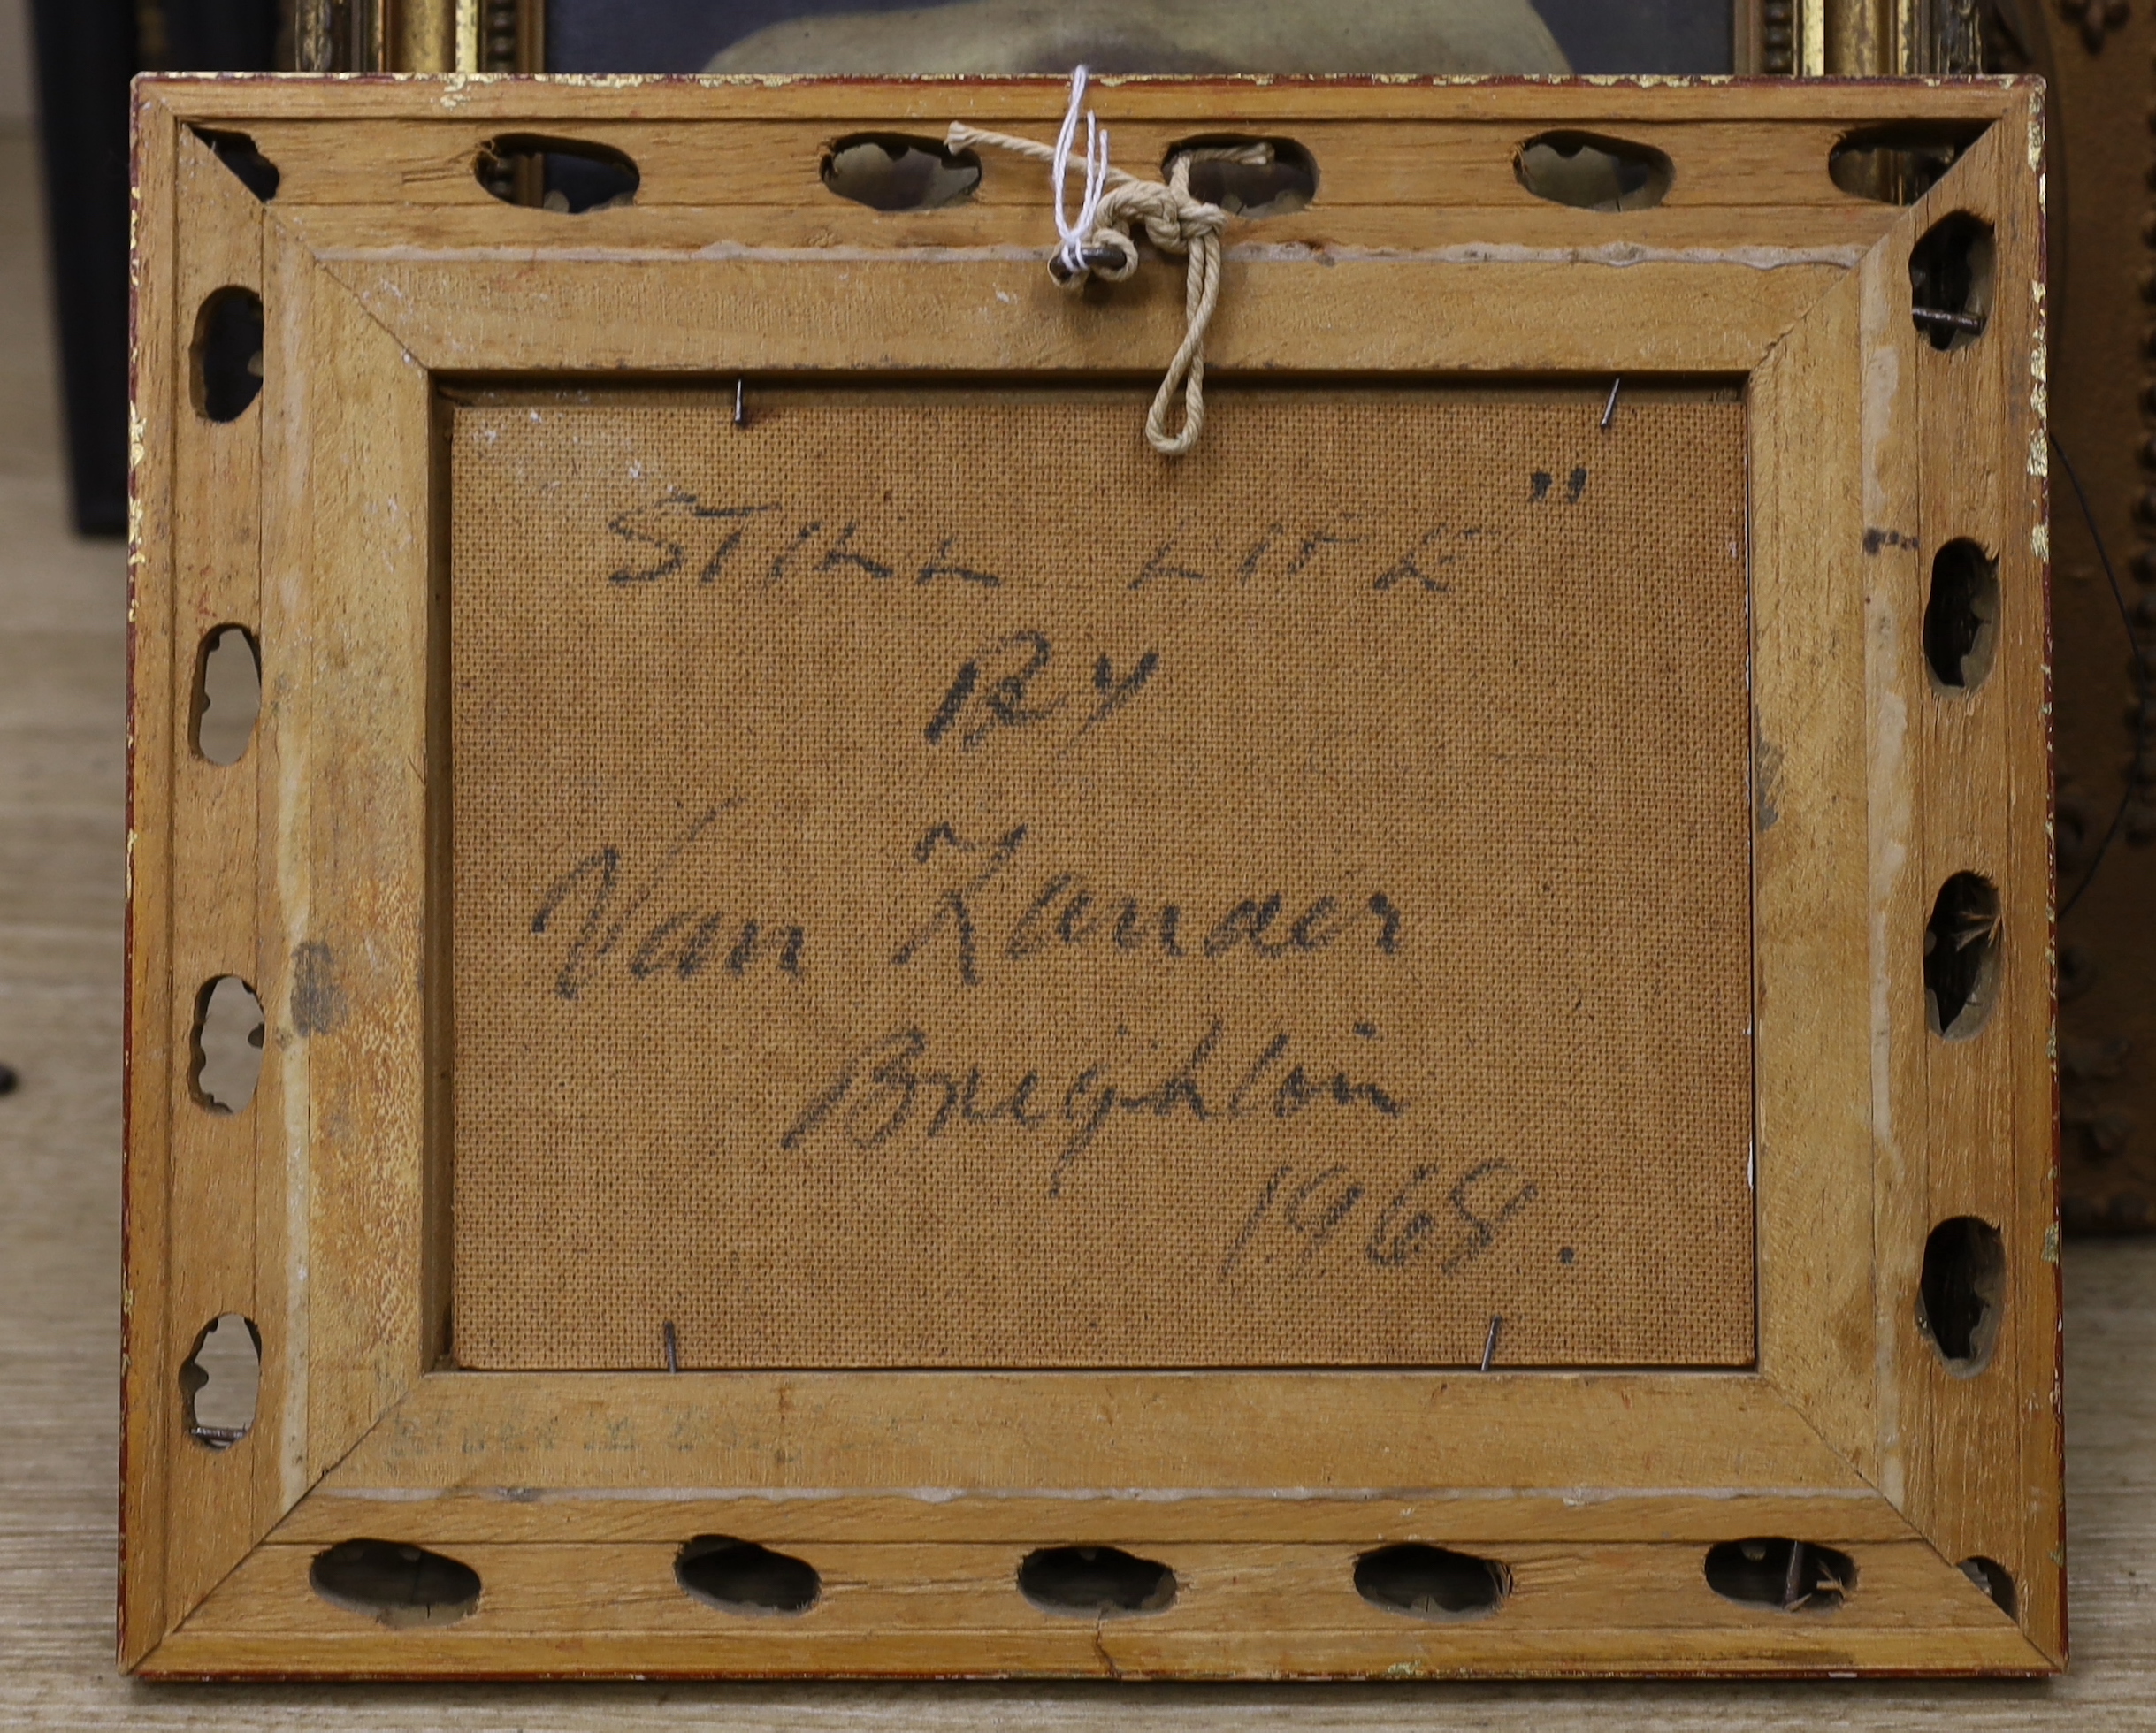 STILL LIFE"
BY
Van Zander
Breighton
1968.